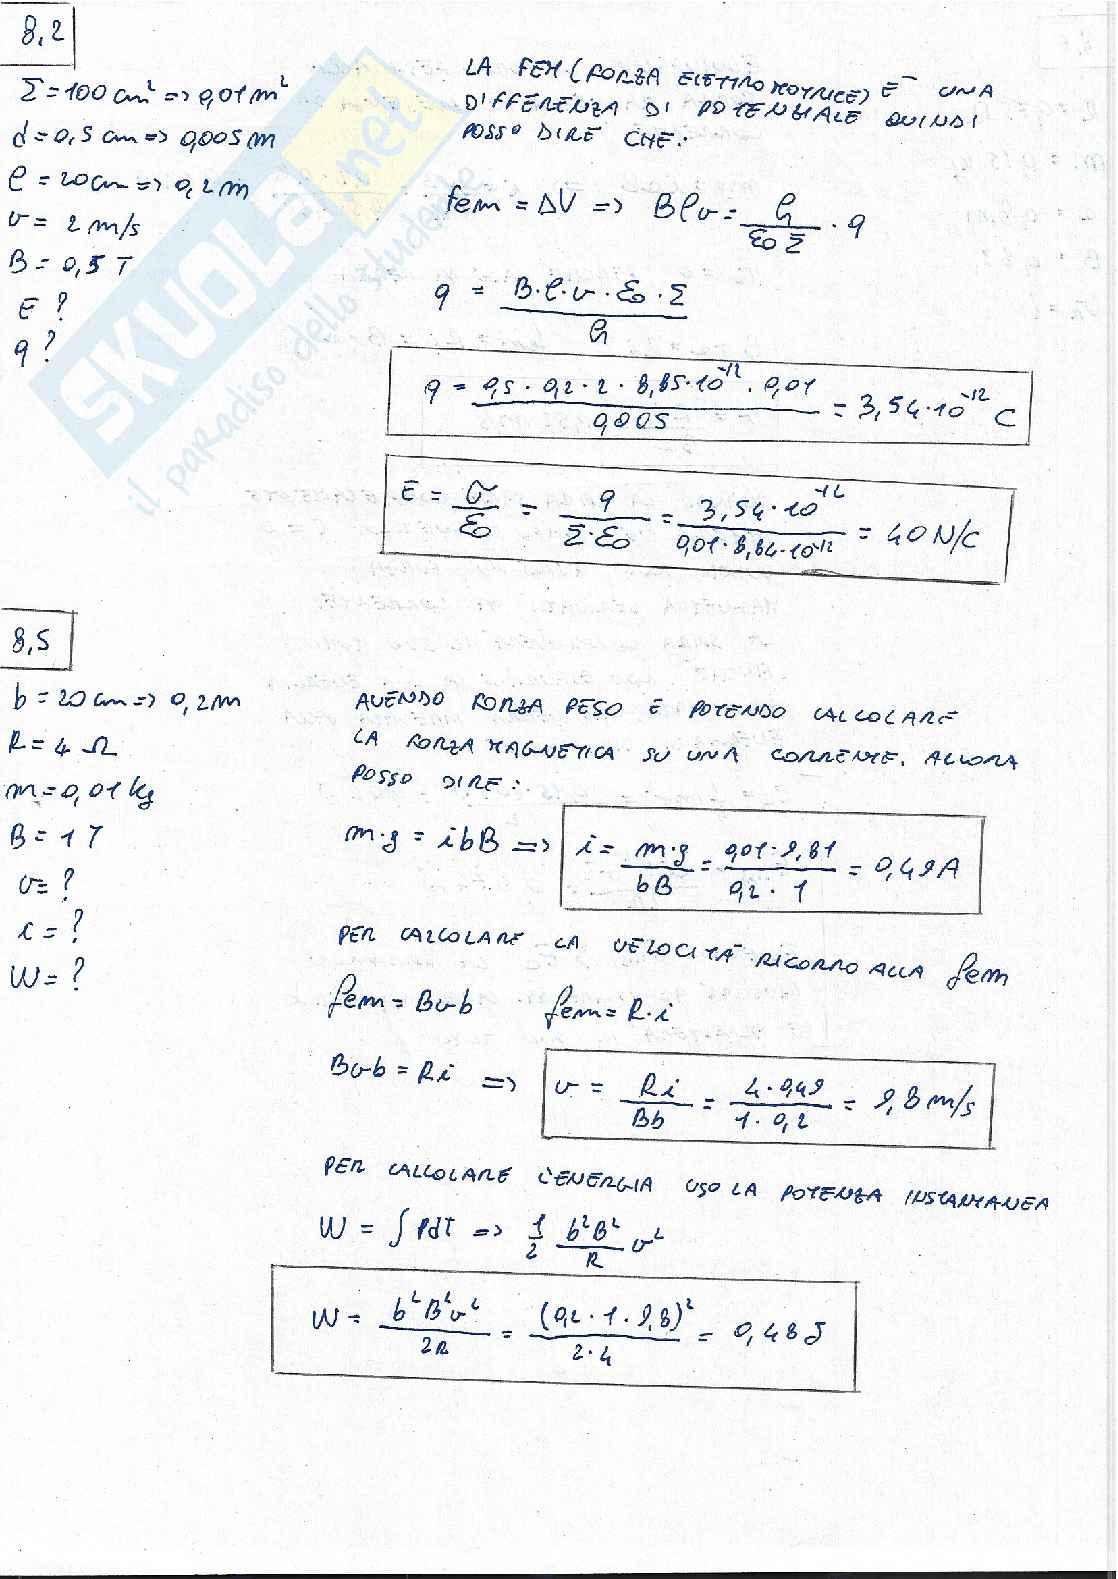 8,2
Σ=100 cm² => 0,01 m²
d=0,5 cm => 0,005 m
ℓ = 20 cm => 0,2 m
v = 2 m/s
B = 0,5 T
E ?
q ?
LA FEM (FORZA ELETTROMOTRICE) E' UNA
DIFFERENZA DI POTENZIALE QUINDI
POSSO DIRE CHE:
fem = ΔV => Bℓv = h/(ε0 Σ) · q
q = (B·ℓ·v·ε0·Σ)/h
q = (0,5 · 0,2 · 2 · 8,85·10^-12 · 0,01)/0,005 = 3,54·10^-12 C
E = σ/ε0 = q/(Σ·ε0) = (3,54·10^-12)/(0,01·8,84·10^-12) = 40 N/C
8,5
b = 20 cm => 0,2 m
R = 4 Ω
m = 0,01 kg
B = 1 T
v = ?
i = ?
W = ?
AVENDO FORZA PESO E POTENDO CALCOLARE
LA FORZA MAGNETICA SU UNA CORRENTE. ALLORA
POSSO DIRE:
m·g = ibB => i = (m·g)/(bB) = (0,01·9,81)/(0,2 · 1) = 0,49 A
PER CALCOLARE LA VELOCITA' RICORRO ALLA fem
fem = Bvb fem = R·i
Bvb = Ri => v = Ri/Bb = (4·0,49)/(1·0,2) = 9,8 m/s
PER CALCOLARE L'ENERGIA USO LA POTENZA INSTANTANEA
W = ∫PdT => 1/2 (b²B²)/R v²
W = (b²B²v²)/2R = (0,2 · 1 · 9,8)²/(2·4) = 0,48 J
SKUOLA.net
il paradiso dello studente